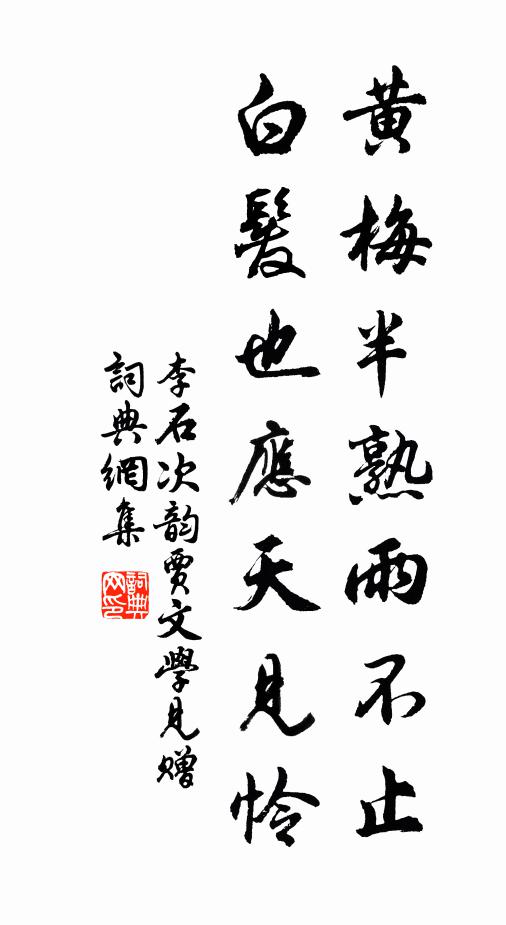 黃梅半熟雨不止
白髮也應天見怜
李石次韵賈文學見贈
詞典網集
詞典網印